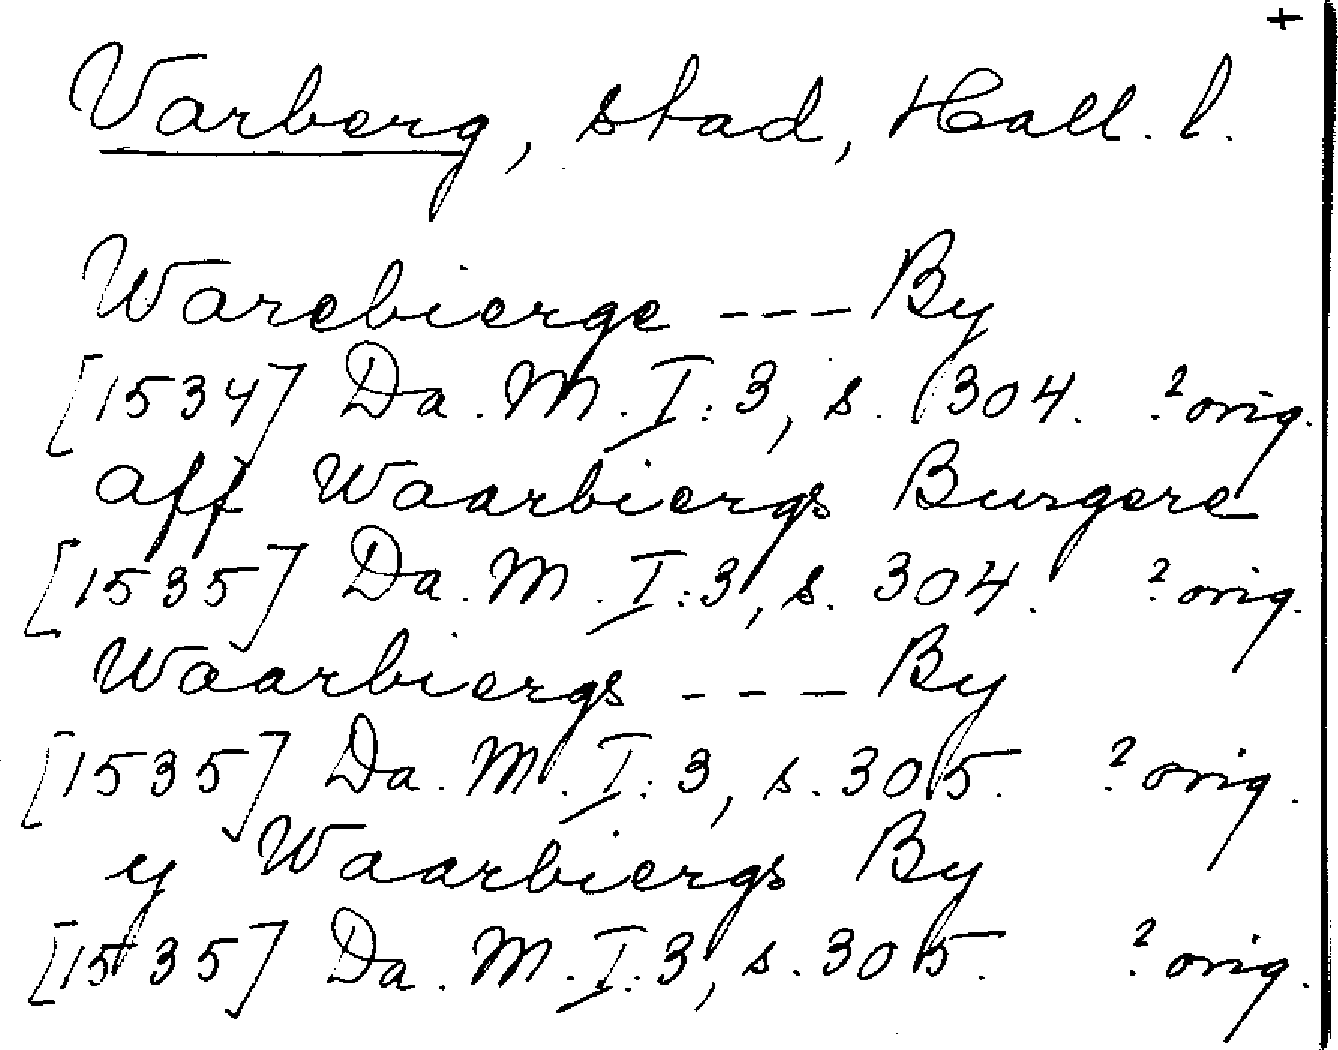 +
Varberg, stad, Hall. l.
Warebierge --- By
[1534] Da. M. I: 3, s. 304. ? orig.
aff Waarbiergs Burgere
[1535] Da. M. I: 3, s. 304. ? orig.
Waarbiergs --- By
[1535] Da. M. I: 3, s. 305. ? orig.
y Waarbiergs By
[1535] Da. M. I: 3, s. 305. ? orig.